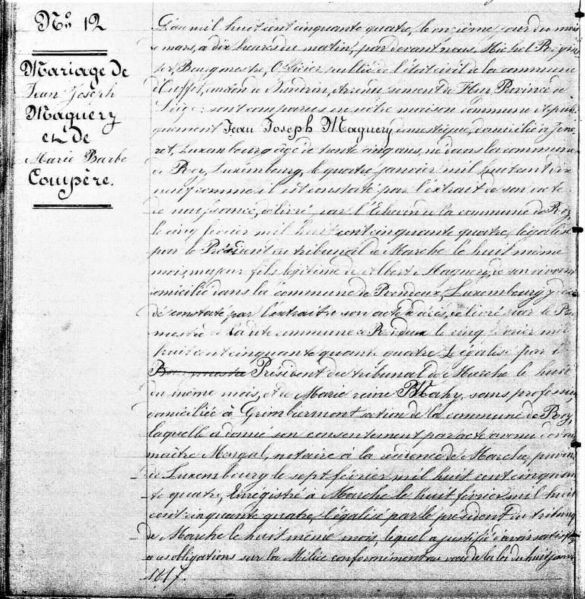 No 12
Mariage de
Jean Joseph
Maguery
et de
Marie Barbe
Compère.
L'an mil huit cent cinquante quatre, le onzième jour du mois
de mars, à dix heures du matin, par devant nous, Michel
Bourgmestre, Officier public de l'état civil de la commune
d'Ouffet, canton de arrondissement de Huy Province de
Liège: sont comparus en notre maison commune
Jean Joseph Maguery domestique, domicilié à
Luxembourg âgé de trente cinq ans, né dans la commune
de Roy, Luxembourg, le quatre janvier mil huit cent
neuf comme il est constaté par l'extrait de son acte
de naissance, délivré par l'Echevin de la commune de Roy
le cinq février mil huit cent cinquante quatre, légalisé
par le Président du tribunal de Marche le huit même
mois, majeur fils légitime de Albert Maguery, de son vivant
domicilié dans la commune de Rendeux, Luxembourg, y
décédé constaté par l'extrait de son acte de décès, délivré par le
mestre de ladite commune de Rendeux le cinq février mil
huit cent cinquante quatre légalisé par le
Président du tribunal de Marche le huit
du même mois, et de Marie reine Mahy, sans profession
domiciliée à Grimbiermont section de la commune de Roy,
laquelle a donné son consentement par acte avenu devant
maître notaire à la résidence de Marche, province
de Luxembourg le sept février mil huit cent cinquan
te quatre, Enregistré à Marche le huit février mil huit
cent cinquante quatre, légalisé par le président du tribunal
de Marche le huit même mois, lequel a justifié d'avoir satisfait
aux obligations sur la Milice conformément au vœu de la loi du huit janvier
1817.